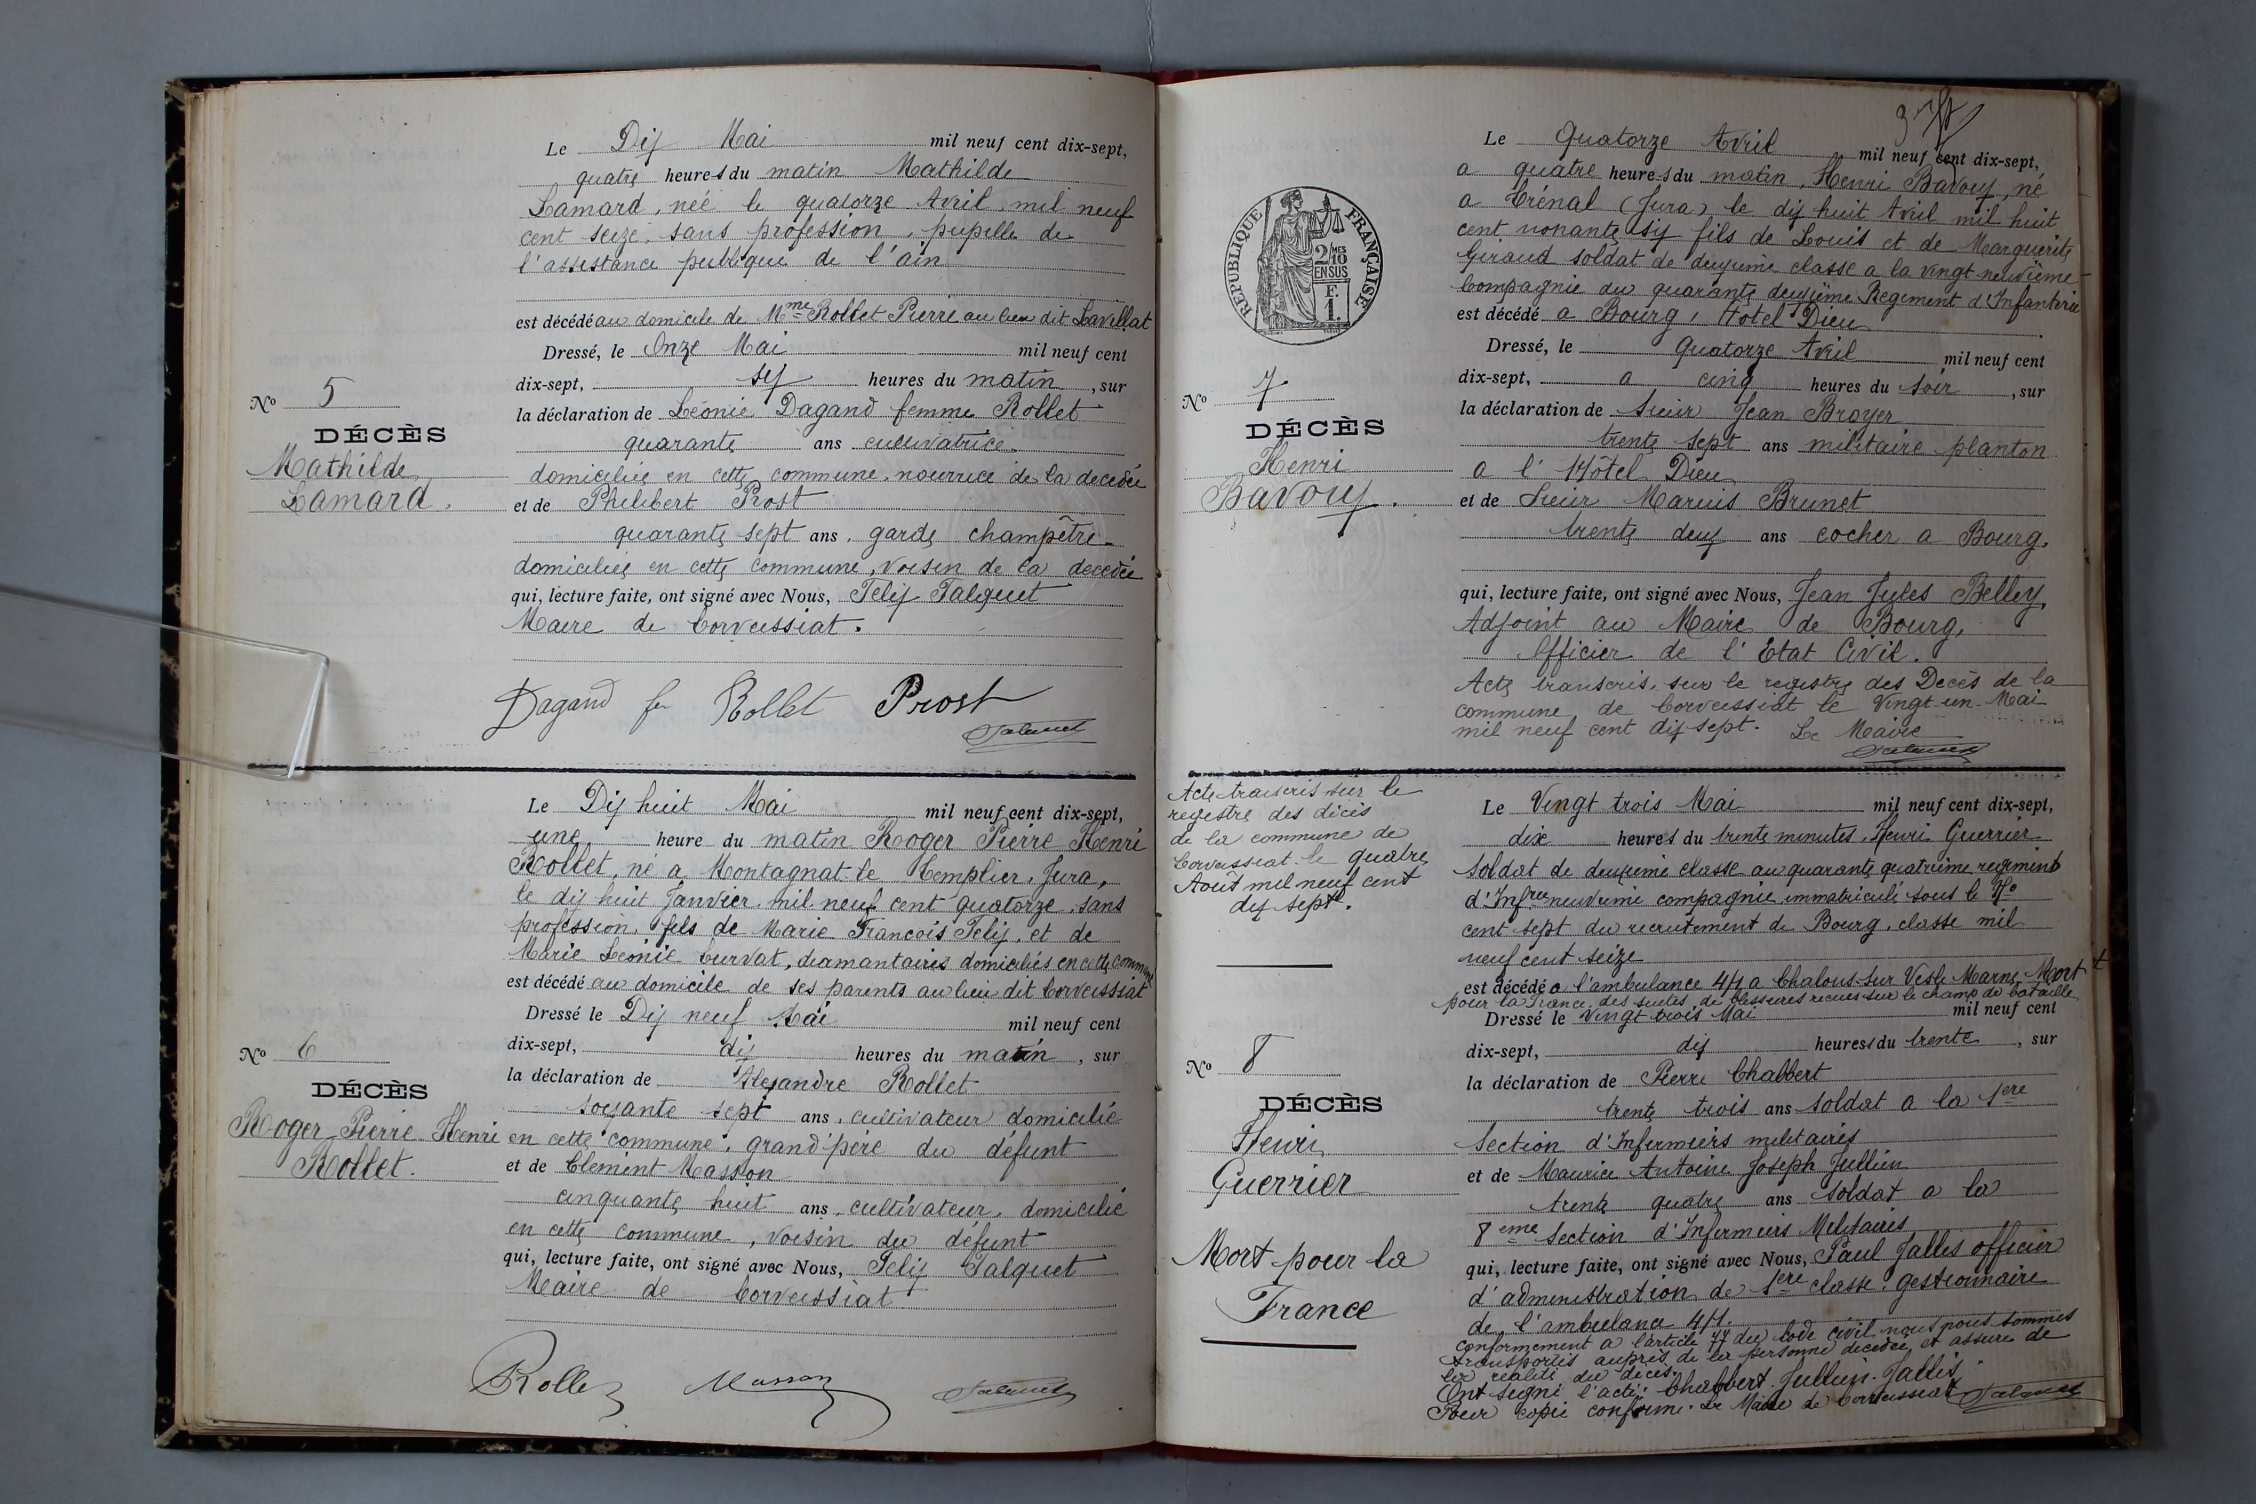 Le Dix Mai mil neuf cent dix-sept,
quatre heures du matin Mathilde
Lamard, née le quatorze Avril mil neuf
cent seize, sans profession, pupille de
l'assistance publique de l'ain
est décédé au domicile de Mme Rollet Pierre au lieu dit Lavillat
Dressé, le Onze Mai mil neuf cent
dix-sept, six heures du matin, sur
la déclaration de Léonie Dagand femme Rollet
quarante ans cultivatrice
domiciliée en cette commune, nourrice de la décédée
et de Philibert Prost
quarante sept ans, garde champêtre
domiciliée en cette commune, voisin de la décédée
qui, lecture faite, ont signé avec Nous, Félix Falquet
Maire de Corveissiat.
No 5
DÉCÈS
Mathilde
Lamard.
Dagand fe Rollet Prost
Falquet
Le Dix huit Mai mil neuf cent dix-sept,
une heure du matin Roger Pierre Henri
Rollet, né a Montagnat-le Templier, Jura,
le dix huit Janvier mil neuf cent quatorze, sans
profession, fils de Marie François Félix, et de
Marie Léonie Curvat, diamantaires domiciliés en cette commune
est décédé au domicile de ses parents au lieu dit Corveissiat
Dressé le Dix neuf Mai mil neuf cent
dix-sept, dix heures du matin, sur
la déclaration de Alexandre Rollet
soixante sept ans, cultivateur domicilié
en cette commune, grand'père du défunt
et de Clément Masson
cinquante huit ans, cultivateur, domicilié
en cette commune, voisin du défunt
qui, lecture faite, ont signé avec Nous, Félix Falquet
Maire de Corveissiat
No 6
DÉCÈS
Roger Pierre Henri
Rollet.
Rollet Masson Falquet
RÉPUBLIQUE FRANÇAISE
2/MES
10
EN SUS
F.
1.
Le Quatorze Avril mil neuf cent dix-sept,
a quatre heures du matin, Henri Bavoux, né
a Trénal (Jura) le dix huit Avril mil huit
cent nonante six fils de Louis et de Marguerite
Giraud soldat de deuxième classe a la vingt neuvième
Compagnie du quarante deuxième Régiment d'Infanterie
est décédé a Bourg, Hotel Dieu
Dressé, le Quatorze Avril mil neuf cent
dix-sept, a cinq heures du soir, sur
la déclaration de Sieur Jean Broyer
trente sept ans militaire planton
a l'Hôtel Dieu
et de Sieur Marius Brunet
trente deux ans cocher a Bourg,
qui, lecture faite, ont signé avec Nous, Jean Jules Belley,
Adjoint au Maire de Bourg,
Officier de l'Etat Civil.
Acte transcris sur le registre des Décès de la
commune de Corveissiat le Vingt-un Mai
mil neuf cent dix sept. Le Maire
Falquet
No 7
DÉCÈS
Henri
Bavoux.
Acte transcris sur le
registre des décès
de la commune de
Corveissiat le quatre
Août mil neuf cent
dix sept.
No 8
DÉCÈS
Henri
Guerrier
Mort pour la
France
Le Vingt trois Mai mil neuf cent dix-sept,
dix heures du trente minutes, Henri Guerrier
soldat de deuxième classe au quarante quatrième régiment
d'Infrie neuvième compagnie immatriculé sous le No
cent sept du recrutement de Bourg, classe mil
neuf cent seize
est décédé a l'ambulance 4/1 a Chalons sur Vesle Marne, Mort
pour la France des suites de blessures reçues sur le champ de bataille
Dressé le Vingt trois Mai mil neuf cent
dix-sept, dix heures du trente, sur
la déclaration de Pierre Chabbert
trente trois ans soldat a la 1ere
Section d'Infirmiers militaires
et de Maurice Antoine Joseph Jullien
trente quatre ans soldat a la
8eme Section d'Infirmiers Militaires
qui, lecture faite, ont signé avec Nous, Paul Jallis officier
d'administration de 1ere classe, gestionnaire
de l'ambulance 4/1.
Conformement a l'article 77 du Code civil nous nous sommes
transportés auprès de la personne décédée et assuré de
la réalité du décès.
Ont signé l'acte: Chabbert, Jullien, Jallis.
Pour copie conforme. Le Maire de Corveissiat Falquet